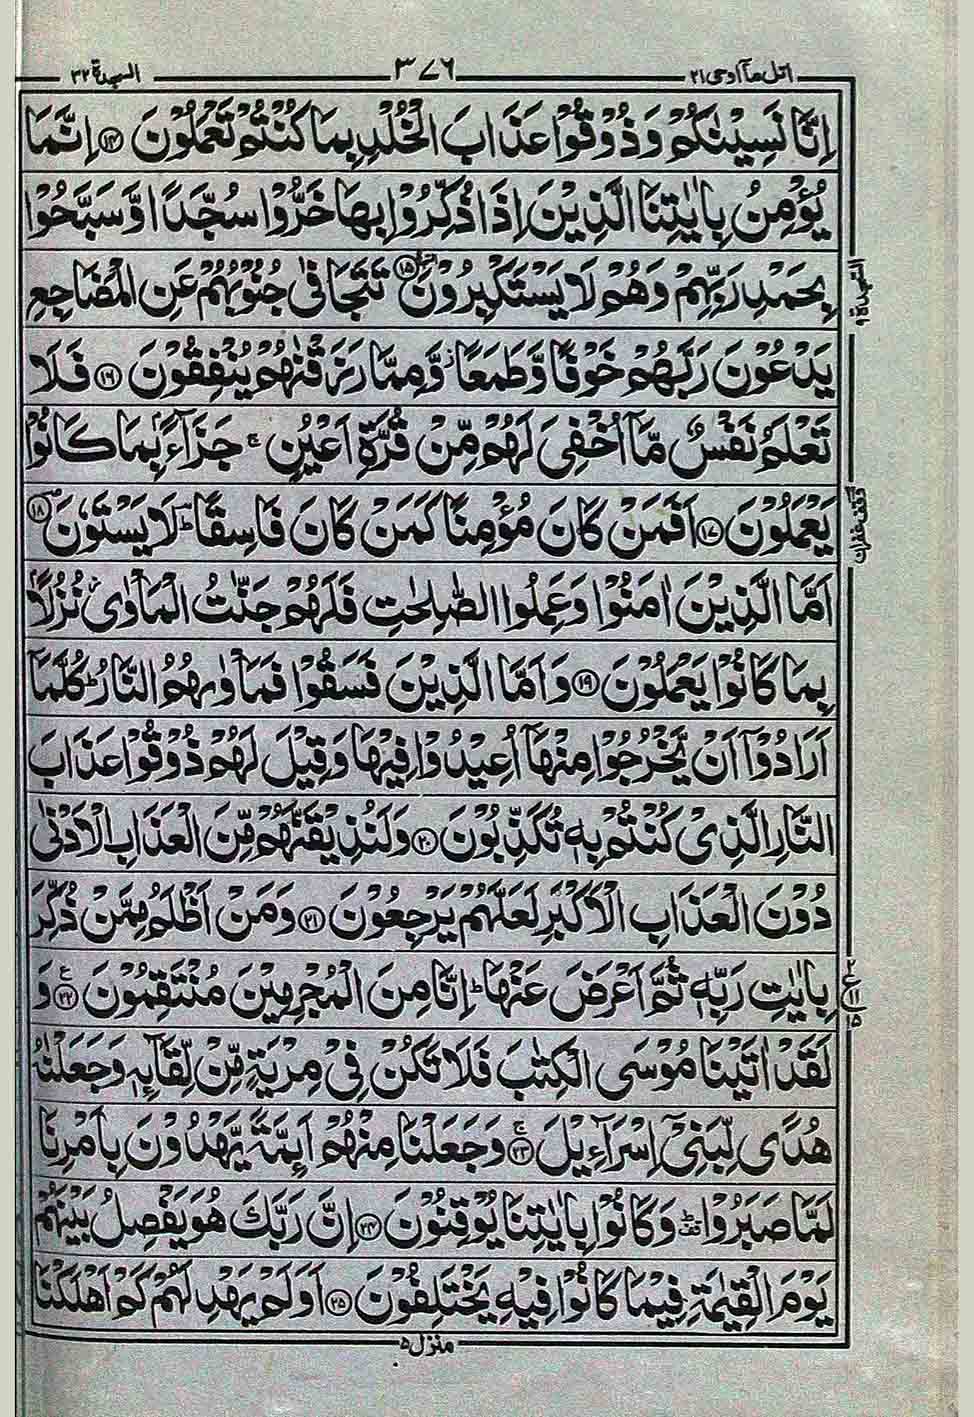 اتل مآ اوحی ٢١
٣٧٦
السجدة ٣٢
اِنَّا نَسِيْنٰكُمْ وَذُوْقُوْا عَذَابَ الْخُلْدِ بِمَا كُنْتُمْ تَعْمَلُوْنَ ١٤ اِنَّمَا
يُؤْمِنُ بِاٰيٰتِنَا الَّذِيْنَ اِذَا ذُكِّرُوْا بِهَا خَرُّوْا سُجَّدًا وَّسَبَّحُوْا
بِحَمْدِ رَبِّهِمْ وَهُمْ لَا يَسْتَكْبِرُوْنَ ١٥ تَتَجَافٰى جُنُوْبُهُمْ عَنِ الْمَضَاجِعِ
السجدة ٩
يَدْعُوْنَ رَبَّهُمْ خَوْفًا وَّطَمَعًا ز وَّمِمَّا رَزَقْنٰهُمْ يُنْفِقُوْنَ ١٦ فَلَا
تَعْلَمُ نَفْسٌ مَّآ اُخْفِىَ لَهُمْ مِّنْ قُرَّةِ اَعْيُنٍ ج جَزَآءًۢ بِمَا كَانُوْا
يَعْمَلُوْنَ ١٧ اَفَمَنْ كَانَ مُؤْمِنًا كَمَنْ كَانَ فَاسِقًا ط لَا يَسْتَوٗنَ ١٨
وقف غفران
اَمَّا الَّذِيْنَ اٰمَنُوْا وَعَمِلُوا الصّٰلِحٰتِ فَلَهُمْ جَنّٰتُ الْمَاْوٰى ز نُزُلًاۢ
بِمَا كَانُوْا يَعْمَلُوْنَ ١٩ وَاَمَّا الَّذِيْنَ فَسَقُوْا فَمَاْوٰىهُمُ النَّارُ ط كُلَّمَآ
اَرَادُوْٓا اَنْ يَّخْرُجُوْا مِنْهَآ اُعِيْدُوْا فِيْهَا وَقِيْلَ لَهُمْ ذُوْقُوْا عَذَابَ
النَّارِ الَّذِىْ كُنْتُمْ بِهٖ تُكَذِّبُوْنَ ٢٠ وَلَنُذِيْقَنَّهُمْ مِّنَ الْعَذَابِ الْاَدْنٰى
دُوْنَ الْعَذَابِ الْاَكْبَرِ لَعَلَّهُمْ يَرْجِعُوْنَ ٢١ وَمَنْ اَظْلَمُ مِمَّنْ ذُكِّرَ
بِاٰيٰتِ رَبِّهٖ ثُمَّ اَعْرَضَ عَنْهَا ط اِنَّا مِنَ الْمُجْرِمِيْنَ مُنْتَقِمُوْنَ ع ٢٢ وَ
٢ ع ١١ ٥
لَقَدْ اٰتَيْنَا مُوْسَى الْكِتٰبَ فَلَا تَكُنْ فِىْ مِرْيَةٍ مِّنْ لِّقَآئِهٖ وَجَعَلْنٰهُ
هُدًى لِّبَنِىْٓ اِسْرَآءِيْلَ ج ٢٣ وَجَعَلْنَا مِنْهُمْ اَئِمَّةً يَّهْدُوْنَ بِاَمْرِنَا
لَمَّا صَبَرُوْا قف ط وَكَانُوْا بِاٰيٰتِنَا يُوْقِنُوْنَ ٢٤ اِنَّ رَبَّكَ هُوَ يَفْصِلُ بَيْنَهُمْ
يَوْمَ الْقِيٰمَةِ فِيْمَا كَانُوْا فِيْهِ يَخْتَلِفُوْنَ ٢٥ اَوَلَمْ يَهْدِ لَهُمْ كَمْ اَهْلَكْنَا
منزل ٥